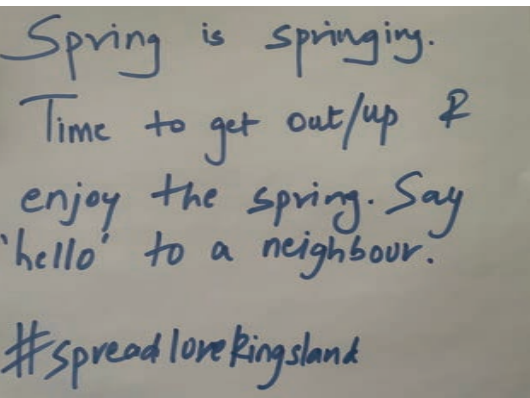 Spring is springing.
Time to get out/up &
enjoy the spring. Say
'hello' to a neighbour.
#spreadlovekingsland